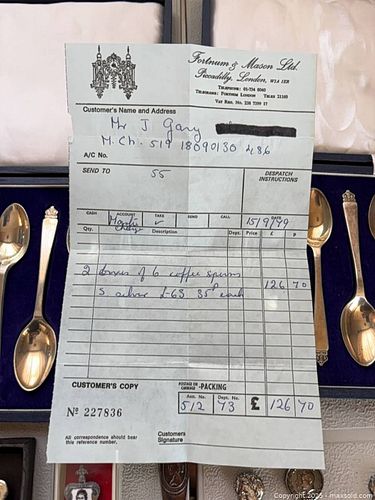 Fortnum & Mason Ltd.
Piccadilly, London, W1A 1ER
TELEPHONE: 01-734 8040
TELEGRAMS: FORTNUM LONDON TELEX
VAT REG. No.
Customer's Name and Address
Mr J Gary
M.Ch. 519 18090130 486
A/C No.
SEND TO
55
DESPATCH INSTRUCTIONS
CASH
ACCOUNT
TAKE
SEND
CALL
DATE
✓
15/9/79
Qty.
Description
Dept.
Price
£
P
2 boxes of 6 coffee spoons
126 70
S. silver £63 35p each
CUSTOMER'S COPY
POSTAGE OR CARRIAGE -PACKING
Nº 227836
Assn. No.
Dept. No.
512
73
£
126 70
All correspondence should bear
this reference number.
Customers
Signature
Copyright 2025 - maxsold.com